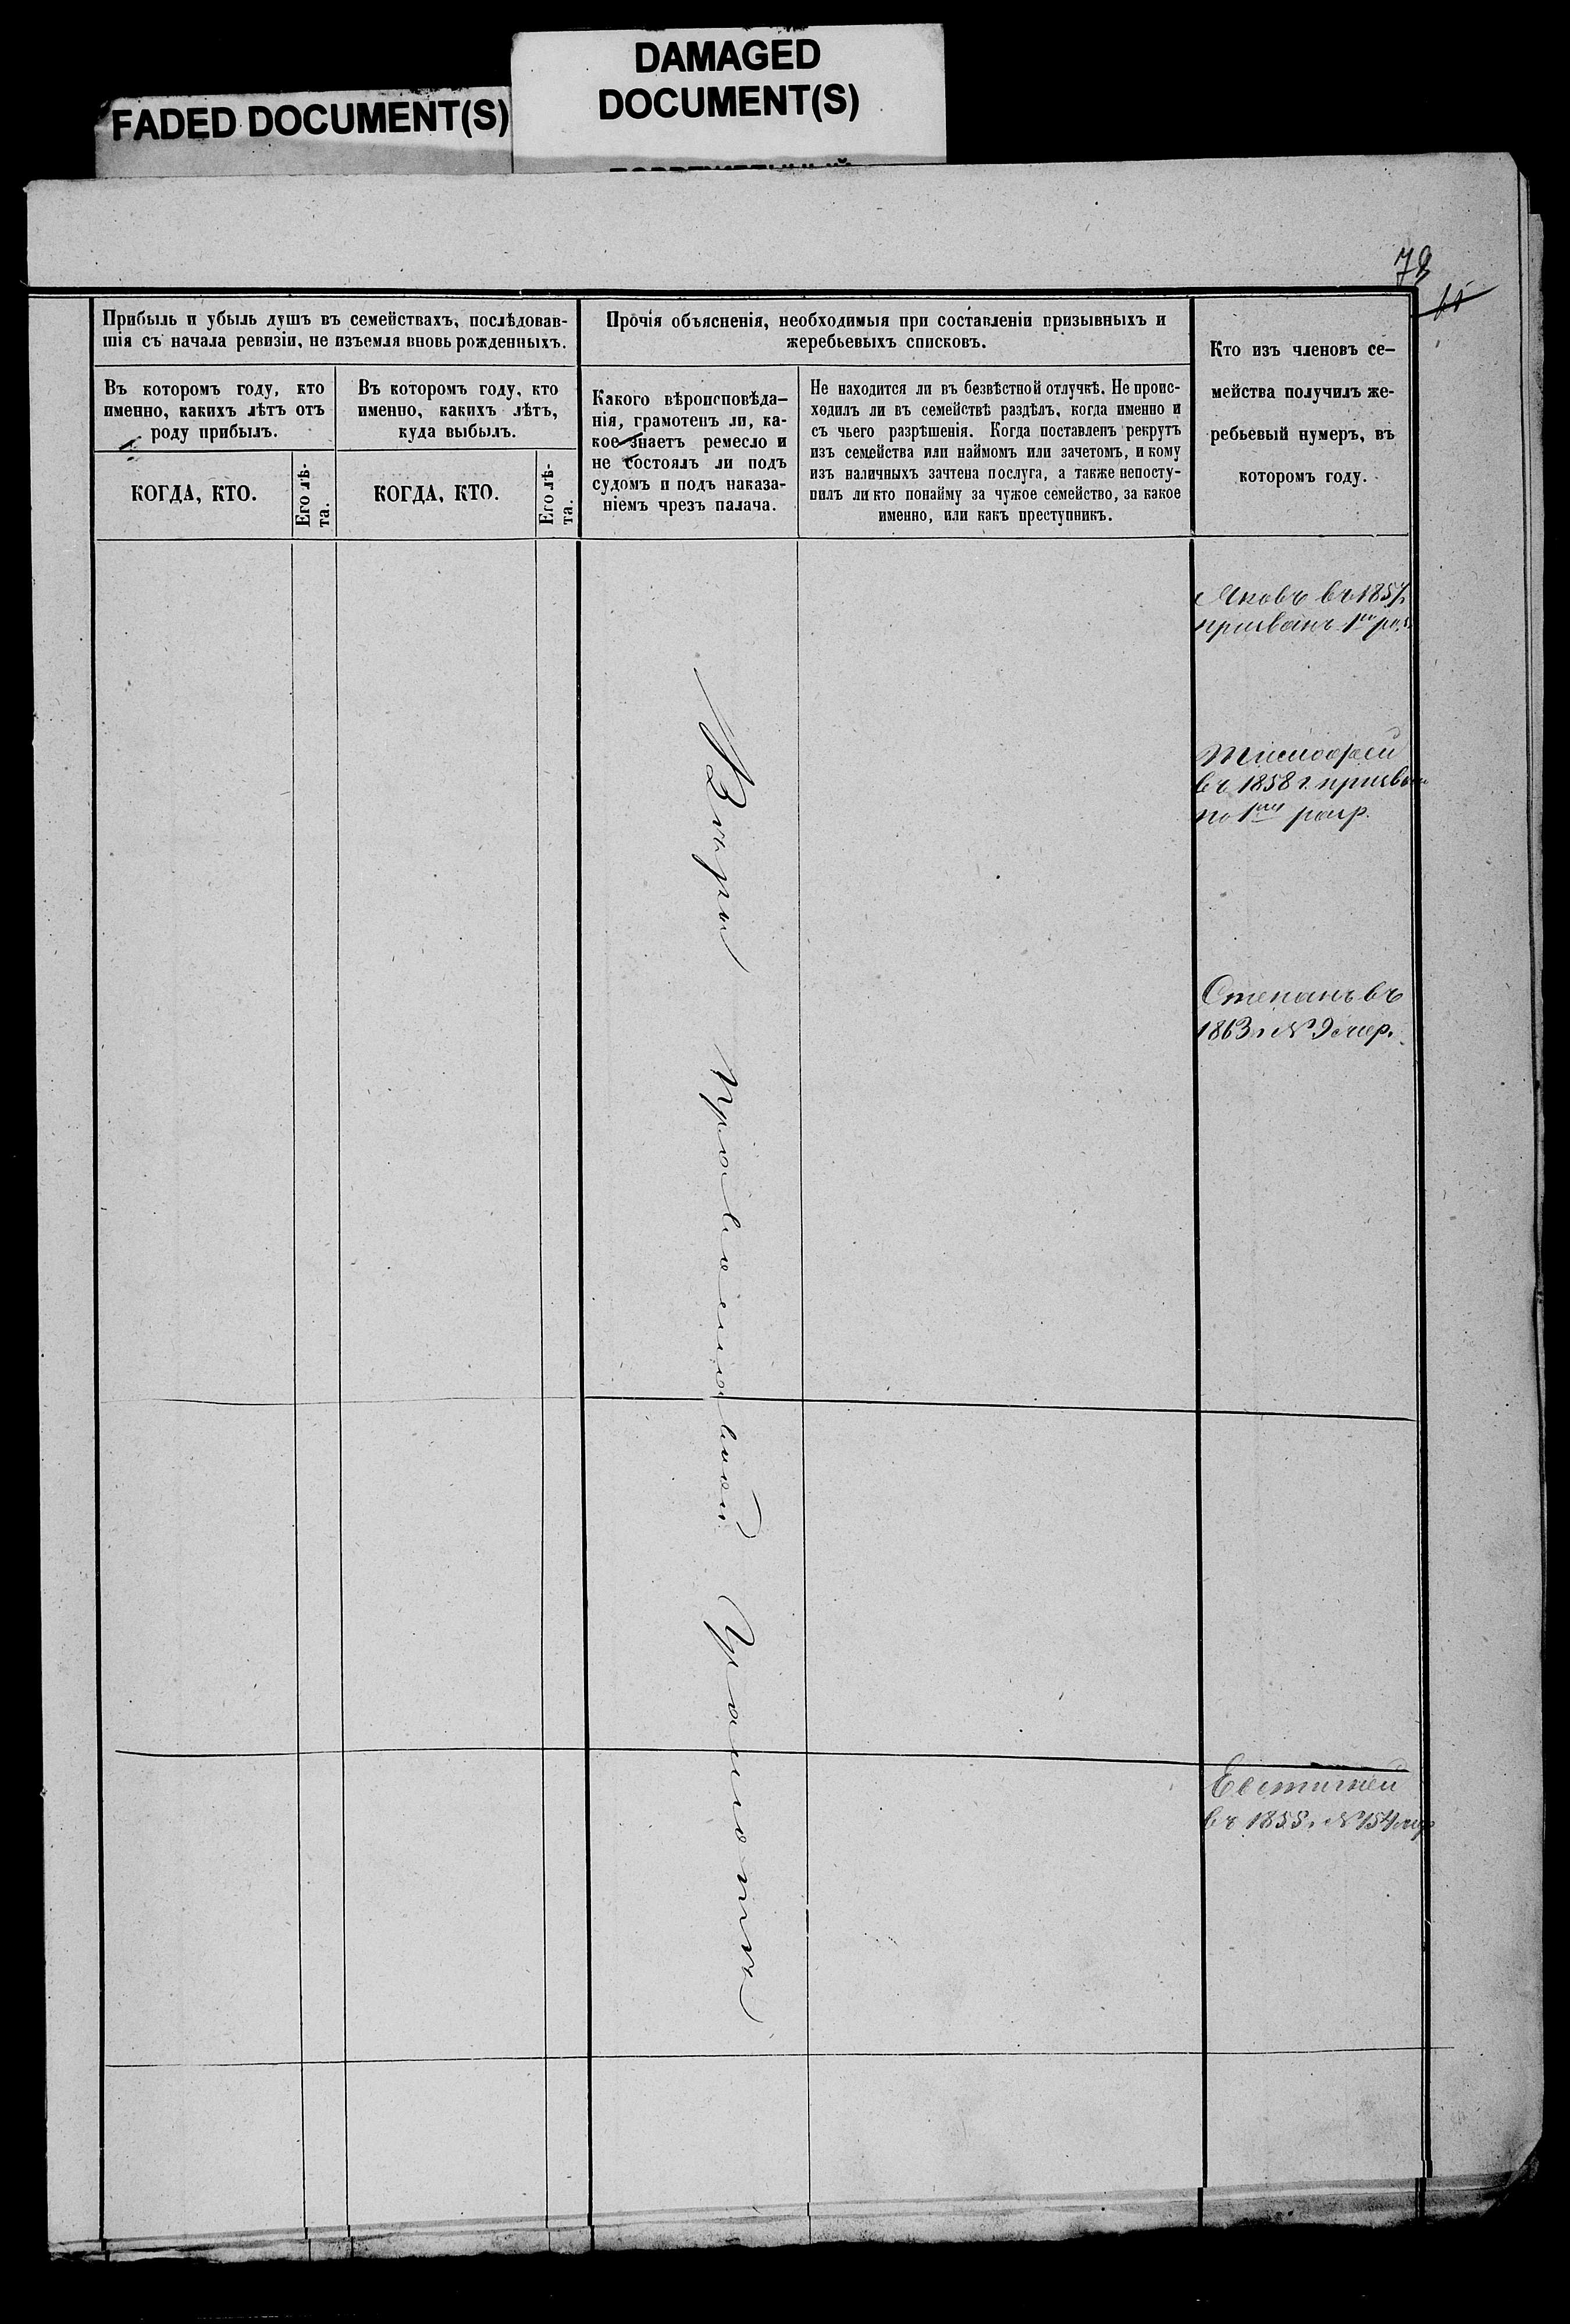 FADED DOCUMENT(S)
DAMAGED
DOCUMENT(S)
Прибыль и убыль душъ въ семействахъ, послѣдовав-
шія съ начала ревизіи, не изъемля вновь рожденныхъ.
Въ которомъ году, кто
именно, какихъ лѣтъ отъ
роду прибылъ.
КОГДА, КТО.
Его лѣ-
та.
Въ которомъ году, кто
именно, какихъ лѣтъ,
куда выбылъ.
КОГДА, КТО.
Его лѣ-
та.
Прочія объясненія, необходимыя при составленіи призывныхъ и
жеребьевыхъ списковъ.
Какого вѣроисповѣда-
нія, грамотенъ ли, ка-
кое знаетъ ремесло и
не состоялъ ли подъ
судомъ и подъ наказа-
ніемъ чрезъ палача.
Не находится ли въ безвѣстной отлучкѣ. Не проис-
ходилъ ли въ семействѣ раздѣлъ, когда именно и
съ чьего разрѣшенія. Когда поставленъ рекрутъ
изъ семейства или наймомъ или зачетомъ, и кому
изъ наличныхъ зачтена послуга, а также непосту-
пилъ ли кто понайму за чужое семейство, за какое
именно, или какъ преступникъ.
Кто изъ членовъ се-
мейства получилъ же-
ребьевый нумеръ, въ
которомъ году.
Вѣры Православной
Яковъ въ 1857
призванъ
Тимофей
въ 1858 г.
по 1му разр.
Степанъ въ
1863 г № 9
Евстигней
въ 1855 г № 154